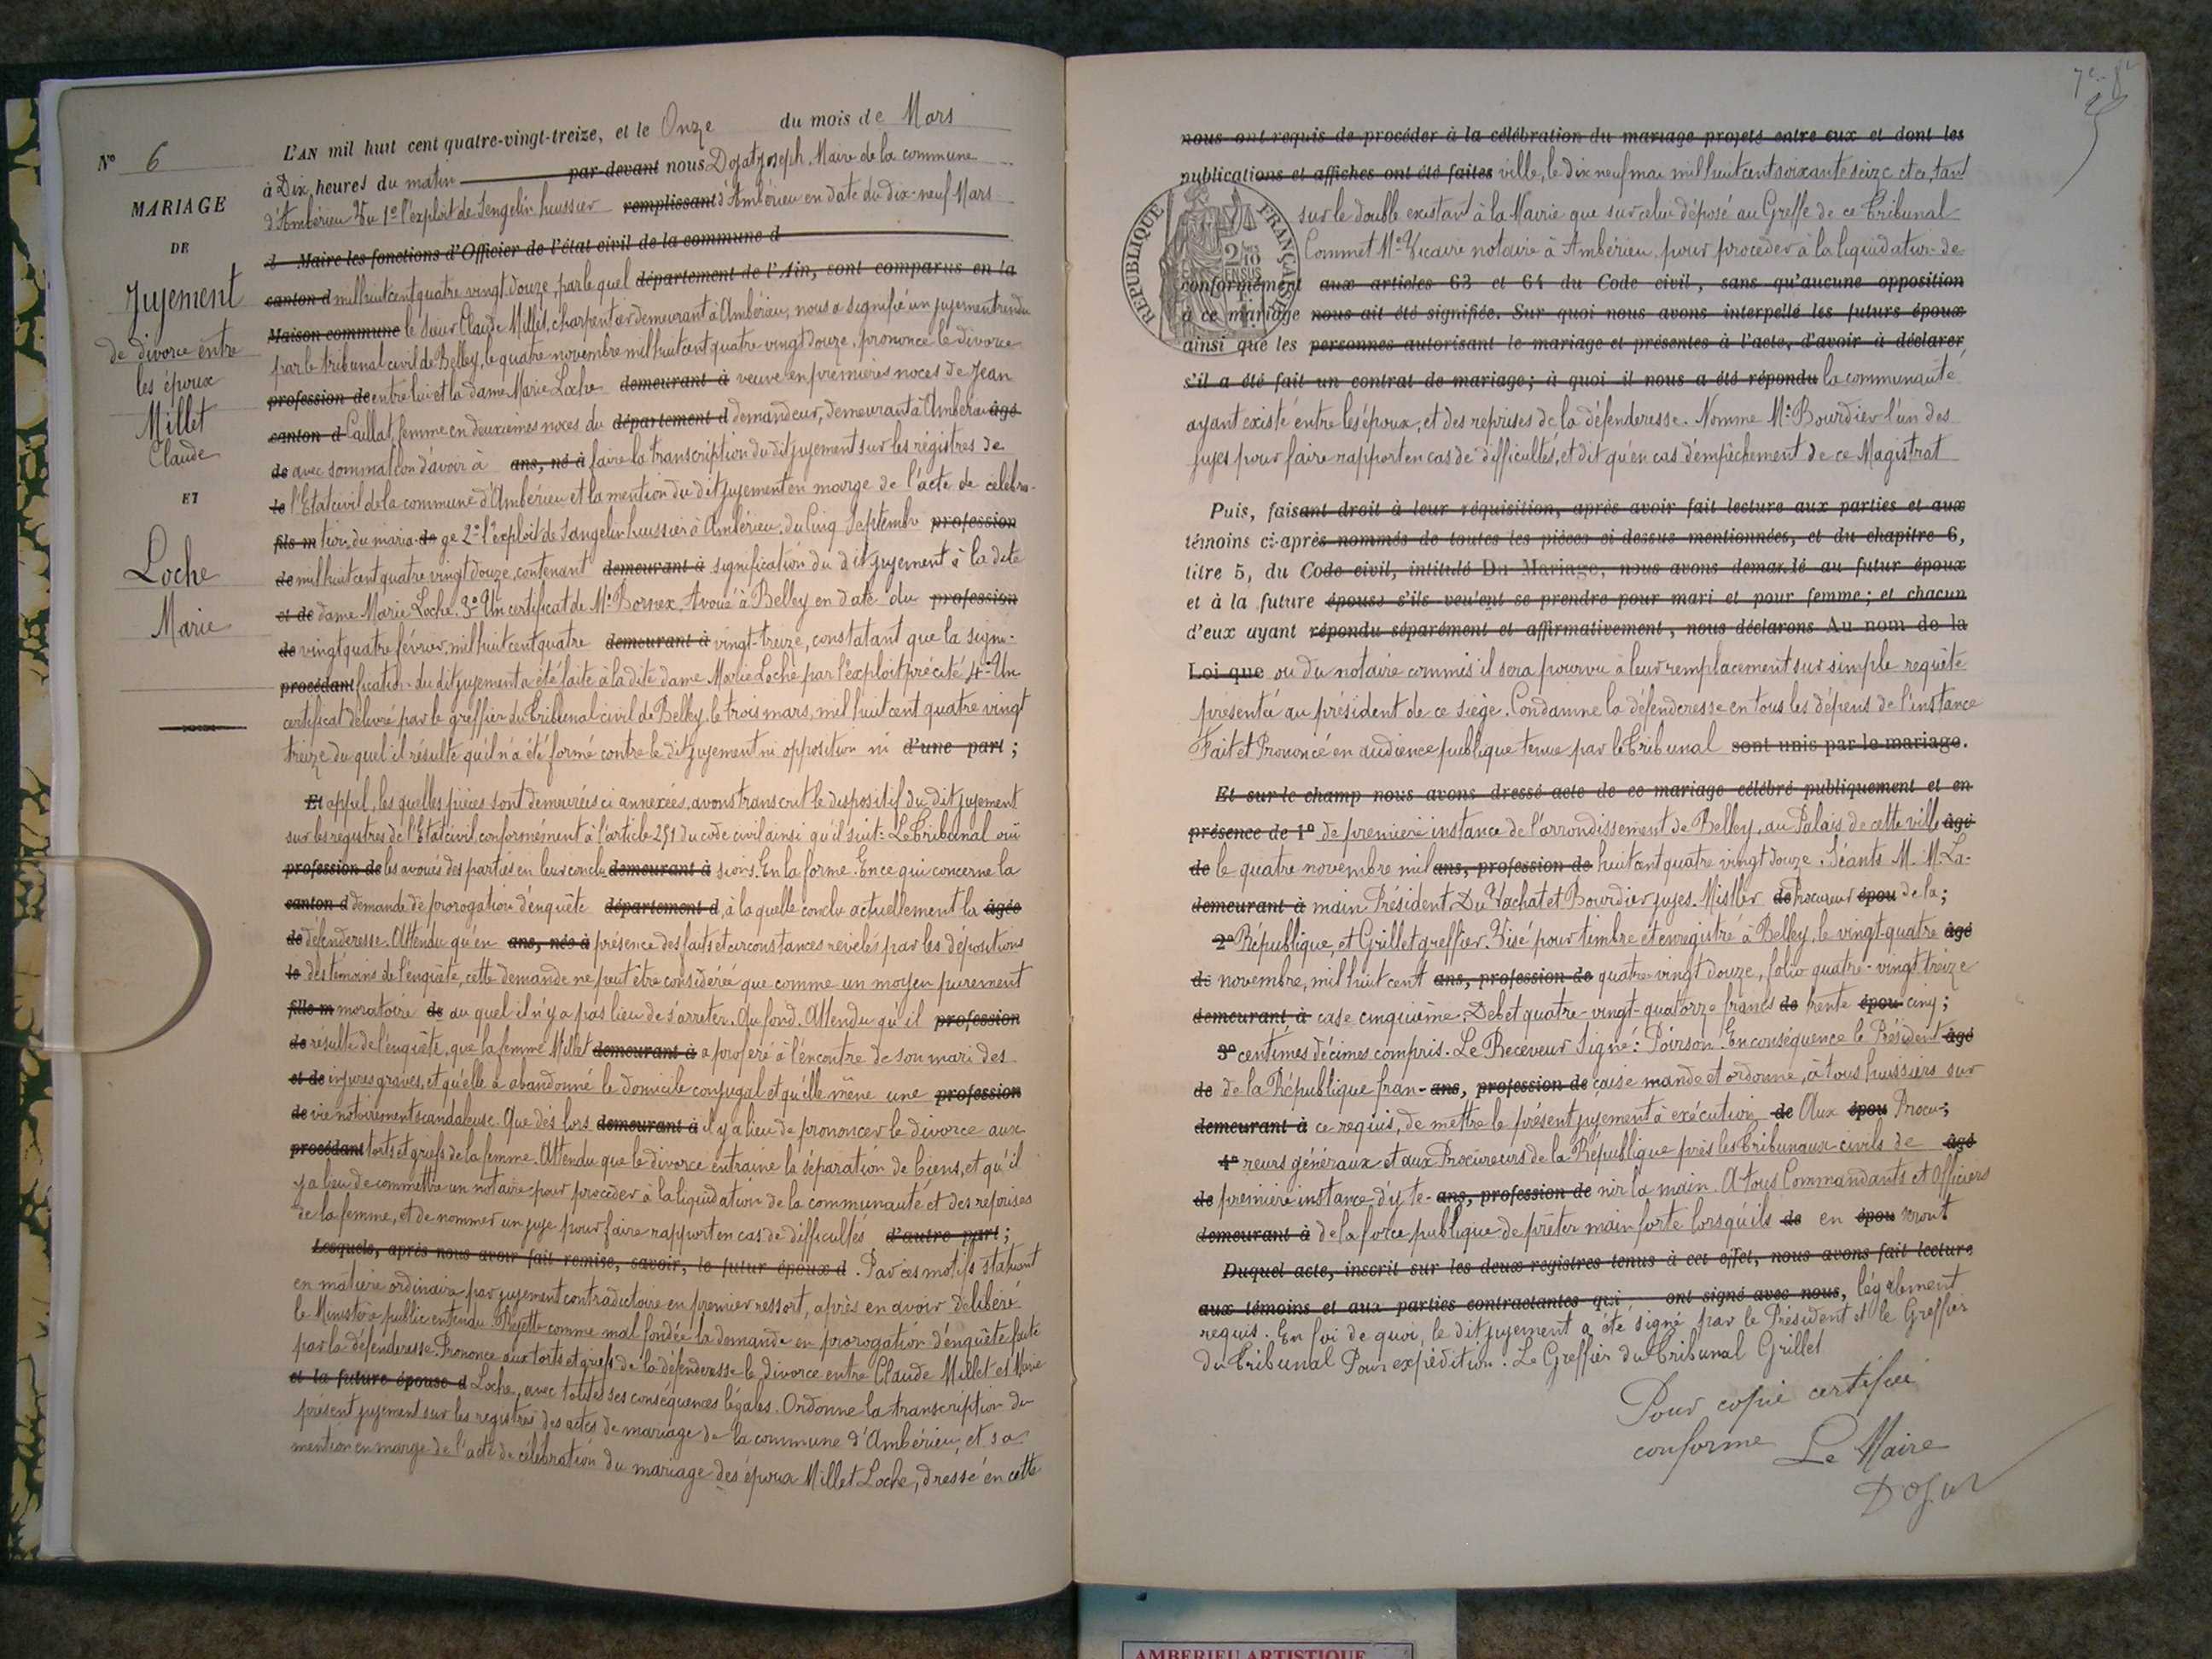 N° 6
MARIAGE
DE
Jujement
de divorce entre
les époux
Millet
Claude
ET
Loche
Marie
L'AN mil huit cent quatre-vingt-treize, et le Onze du mois de Mars
à Dix heures du matin par-devant nous Dojat Joseph, Maire de la commune
d'Ambérieu Vu 1° l'exploit de Sengelin huissier remplissant d'Ambérieu en date du dix-neuf Mars
d Maire les fonctions d'Officier de l'état civil de la commune d
canton d mil huit cent quatre vingt douze, par le quel département de l'Ain, sont comparus en la
Maison commune le sieur Claude Millet, charpentier demeurant à Ambérieu, nous a signifié un jujement rendu
par le tribunal civil de Belley, le quatre novembre mil huit cent quatre vingt douze, prononce le divorce
profession de entre lui et la dame Marie Loche demeurant à veuve en premières noces de Jean
canton d Caillat, femme en deuxièmes noces du département d demandeur, demeurant à Ambérieu âgé
de avec sommation d'avoir à ans, né à faire la transcription du dit jujement sur les régistres de
le l'Etat civil de la commune d'Ambérieu et la mention du dit jujement en marge de l'acte de célébra-
fils m tion du maria- de ge 2° l'exploit de Sangelin huissier à Ambérieu, du Cinq Septembre profession
de mil huit cent quatre vingt douze, contenant demeurant à signification du dit jujement à la dite
et de dame Marie Loche. 3° Un certificat de Me Bornex, Avoué à Belley en date du profession
de vingt quatre février, mil huit cent quatre demeurant à vingt-treize, constatant que la signi-
procédant fication du dit jujement a été faite à la dite dame Marie Loche par l'exploit précité 4° Un
certificat délivré par le greffier du Tribunal civil de Belley, le trois mars, mil huit cent quatre vingt
treize du quel il résulte qu'il n'a été formé contre le dit jujement ni opposition ni d'une part ;
Et appel, les quelles pièces sont demeurées ci annexées, avons transcrit le dispositif du dit jujement
sur les registres de l'Etat civil conformément à l'article 251 du code civil ainsi qu'il suit : Le Tribunal ouï
profession de les avoués des parties en leurs conclu demeurant à sions. En la forme. En ce qui concerne la
canton d demande de prorogation d'enquête département d, à la quelle conclu actuellement la âgée
de défenderesse. Attendu qu'en ans, née à présence des faits et circonstances révélés par les dépositions
le des témoins de l'enquête, cette demande ne peut être considérée que comme un moyen purement
fille m moratoire de au quel il n'y a pas lieu de s'arrêter. Au fond. Attendu qu'il profession
de résulte de l'enquête, que la femme Millet demeurant à a proféré à l'encontre de son mari des
et de injures graves, et qu'elle a abandonné le domicile conjugal et qu'elle mène une profession
de vie notoirement scandaleuse. Que dès lors demeurant à il y a lieu de prononcer le divorce aux
procédant torts et griefs de la femme. Attendu que le divorce entraine la séparation de biens, et qu'il
y a lieu de commettre un notaire pour procéder à la liquidation de la communauté et des reprises
de la femme, et de nommer un juje pour faire rapport en cas de difficultés d'autre part ;
Lesquels, après nous avoir fait remise, savoir, le futur époux d . Par ces motifs statuant
en matière ordinaire par jujement contradictoire en premier ressort, après en avoir délibéré
le Ministère public entendu. Rejette comme mal fondée la demande en prorogation d'enquête faite
par la défenderesse. Prononce aux torts et griefs de la défenderesse le divorce entre Claude Millet et Marie
et la future épouse d Loche, avec toutes ses conséquences légales. Ordonne la transcription du
présent jujement sur les registres des actes de mariage de la commune d'Ambérieu, et sa
mention en marge de l'acte de célébration du mariage des époux Millet Loche, dressé en cette
7e - 8e
nous ont requis de procéder à la célébration du mariage projeté entre eux et dont les
publications et affiches ont été faites ville, le dix neuf mai mil huit cent soixante seize et ce, tant
sur le double existant à la Mairie que sur celui déposé au Greffe de ce Tribunal
Commet Me Vicaire notaire à Ambérieu, pour procéder à la liquidation de
conformément aux articles 63 et 64 du Code civil, sans qu'aucune opposition
à ce mariage nous ait été signifiée. Sur quoi nous avons interpellé les futurs époux
ainsi que les personnes autorisant le mariage et présentes à l'acte, d'avoir à déclarer
s'il a été fait un contrat de mariage ; à quoi il nous a été répondu la communauté
ayant existé entre les époux, et des reprises de la défenderesse. Nomme Mr Bourdier l'un des
jujes pour faire rapport en cas de difficultés, et dit qu'en cas d'empêchement de ce Magistrat
Puis, faisant droit à leur réquisition, après avoir fait lecture aux parties et aux
témoins ci-après nommés de toutes les pièces ci dessus mentionnées, et du chapitre 6,
titre 5, du Code civil, intitulé Du Mariage, nous avons demandé au futur époux
et à la future épouse s'ils veulent se prendre pour mari et pour femme ; et chacun
d'eux ayant répondu séparément et affirmativement, nous déclarons Au nom de la
Loi que ou du notaire commis il sera pourvu à leur remplacement sur simple requête
présenté au président de ce siège. Condamne la défenderesse en tous les dépens de l'instance
Fait et Prononcé en audience publique tenue par le Tribunal sont unis par le mariage.
Et sur-le champ nous avons dressé acte de ce mariage célébré publiquement et en
présence de 1° de première instance de l'arrondissement de Belley, au Palais de cette ville âgé
de le quatre novembre mil ans, profession de huit cent quatre vingt douze. Séants M. M. La-
demeurant à main Président, Du Vachat et Bourdier jujes. Mistler de Procureur épou de la ;
2° République, et Grillet greffier. Visé pour timbre et enregistré à Belley, le vingt-quatre âgé
de novembre, mil huit cent ans, profession de quatre-vingt douze, folio quatre-vingt treize
demeurant à case cinquième. Debet quatre-vingt-quatorze francs de trente épou cinq ;
3° centimes décimes compris. Le Receveur Signé : Poirson. En conséquence le Président âgé
de de la République fran- ans, profession de çaise mande et ordonne, à tous huissiers sur
demeurant à ce requis, de mettre le présent jujement à exécution de Aux épou Procu- ;
4° reurs généraux et aux Procureurs de la République près les Tribunaux civils de âgé
de première instance d'y te- ans, profession de nir la main. A tous Commandants et Officiers
demeurant à de la force publique de prêter main forte lorsqu'ils de en épou seront
Duquel acte, inscrit sur les deux registres tenus à cet effet, nous avons fait lecture
aux témoins et aux parties contractantes qui ont signé avec nous, légalement
requis. En foi de quoi, le dit jujement a été signé par le Président et le Greffier
du Tribunal Pour expédition. Le Greffier du Tribunal Grillet
Pour copie certifiée
conforme Le Maire
Dojat
REPUBLIQUE FRANÇAISE
AMBERIEU ARTISTIQUE